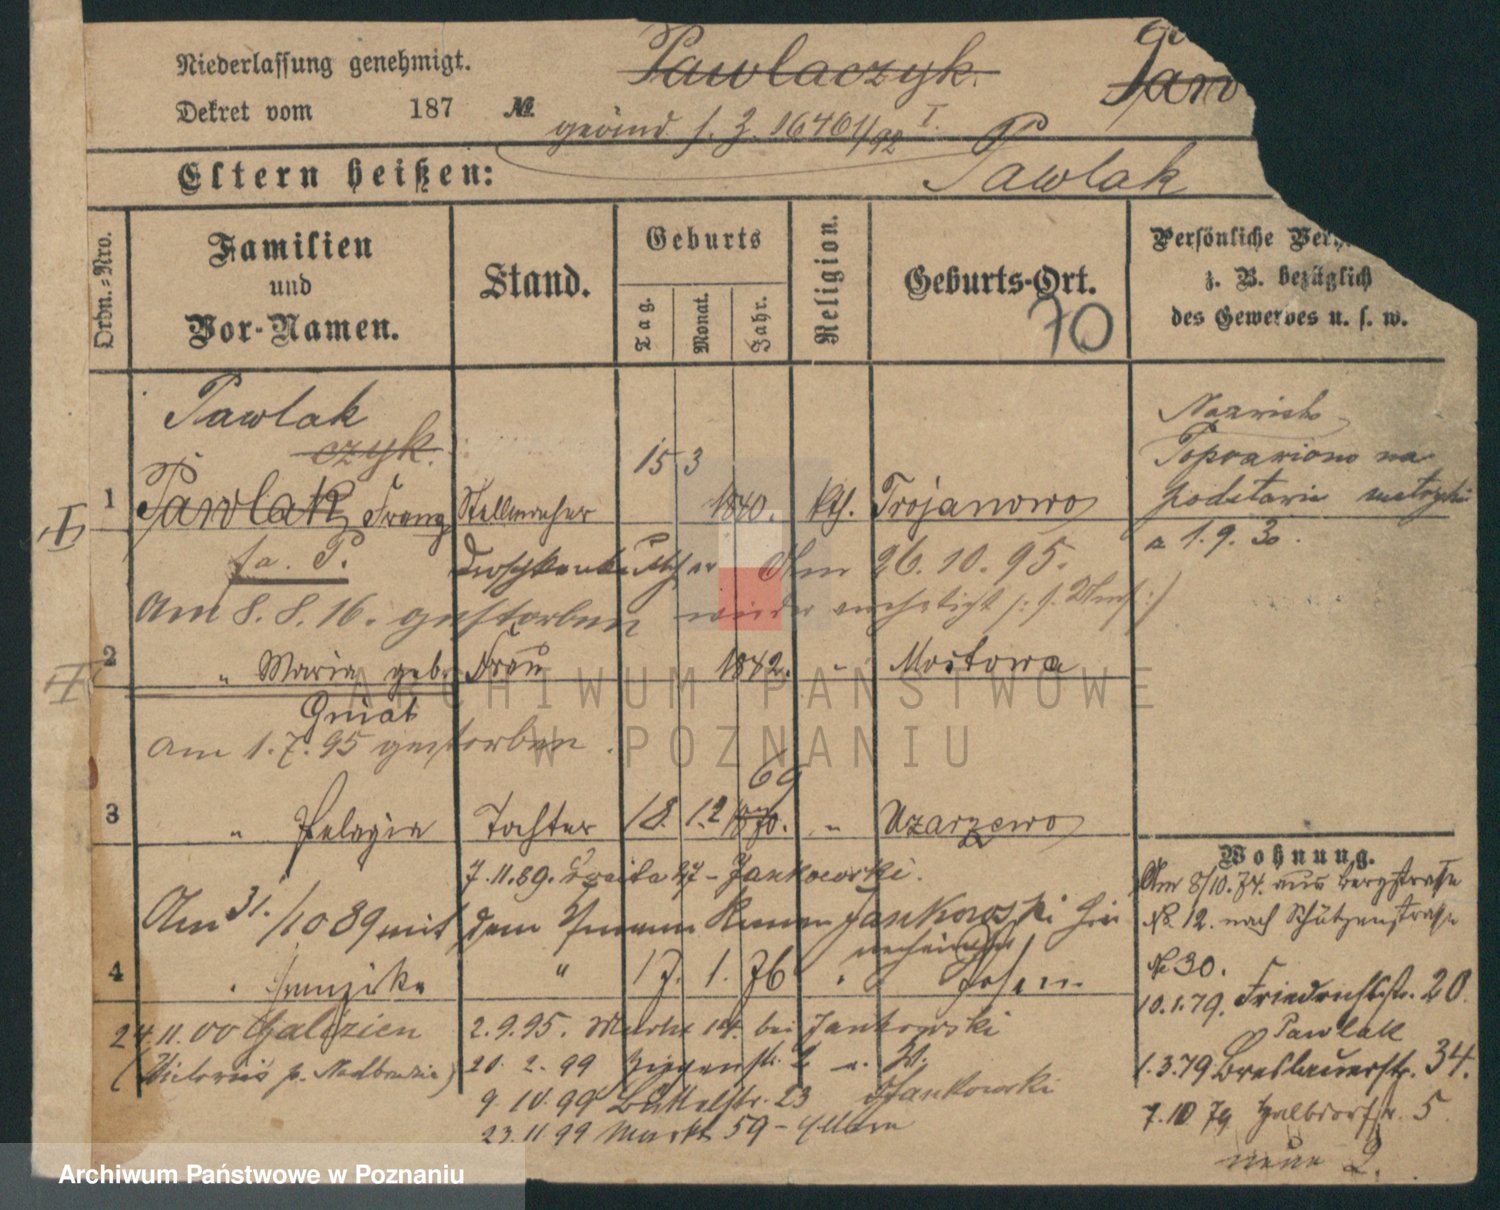 Niederlassung genehmigt.
Dekret vom 187 №
Pawlaczyk.
geänd s. J. 16461/92 I.
Eltern heißen:
Pawlak
Ordn.-Nro.
Familien
und
Vor-Namen.
Stand.
Geburts
Tag.
Monat.
Jahr.
Religion.
Geburts-Ort.
70
Persönliche
z. B. bezüglich
des Gewerbes u. s. w.
Pawlak
czyk.
I
1 Pawlak, Franz Stellmacher 15 3 1840. kth. Trojanowo
fa. P.
Am 26.10.95.
Am 8.8.16. gestorben wieder
Nazwisko
Poprawiono na
podstawie metryki
a 1.9.30.
I
2 " Maria geb. Frau 1842. " Mostowa
Gniat
am 1.7.95 gestorben.
3 " Pelagia Tochter 18. 12 1870. 69 " Uzarzewo
7.11.89. Jankowski.
Am 31./10 89 mit dem Jankowski
4 " Franziska " 17. 1. 76 " Posen
24.11.00 Galizien
(Victoriis p. Nadbrzezie)
2.9.95. Markt bei Jankowski
20.2.99
9.10.99 Büttelstr. 23 Jankowski
23.11.99 Markt 59 -
Wohnung.
Am 8/10.74. aus Bergstraße
No. 12. nach Schützenstraße
No 30.
10.1.79. Friedrichstr. 20.
Pawlak
1.3.79 Breslauerstr. 34.
7.10 79 Halbdorfstr. 5
neue 2.
ARCHIWUM PAŃSTWOWE
W POZNANIU
Archiwum Państwowe w Poznaniu